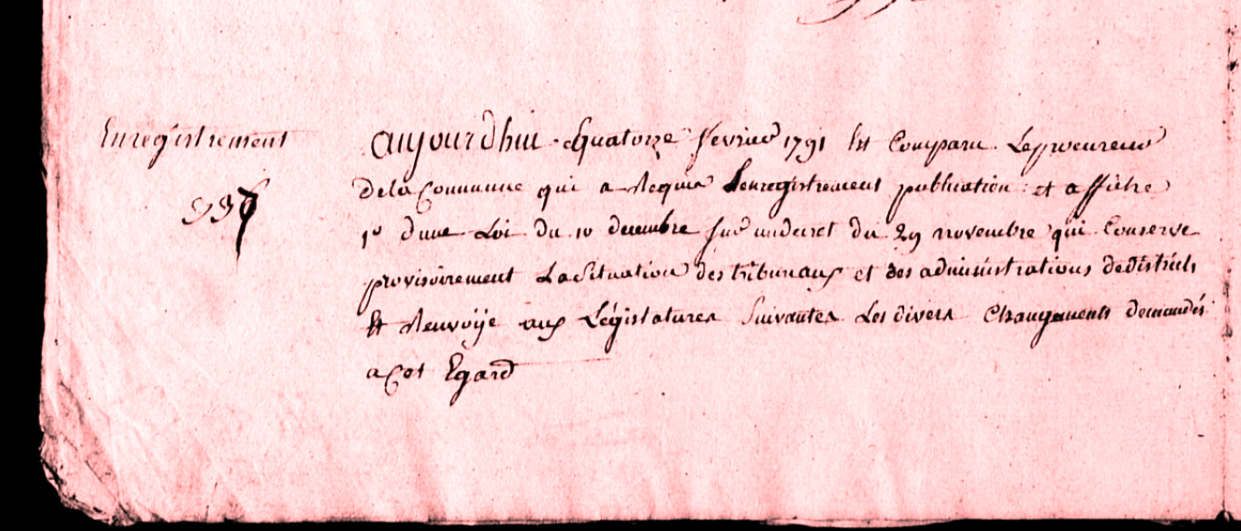 Enregistrement
aujourdhui Quatorze fevrier 1791 Est Comparu Leprocureur
Dela Commune qui a Requis Lenregistrement publication et affiche
1° dune Loi du 10 decembre sur undecret du 29 novembre qui Conserve
provisoirement LaSituation des tribunaux et des administrations deDistricts
Et Renvoÿe aux Législatures Suivantes Les divers Changements demandés
a Cet Egard